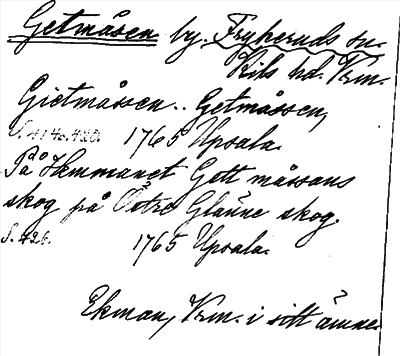 Getmåsen by. Frykeruds sn.
Kils hd. Vrm.
Gietmåssen.. Getmåssen,
S. 414 o. 420. 1765 Upsala.
På Hemmanet Gett måssans
skog på Östre Glänne skog.
S. 426. 1765 Upsala.
Ekman, Vrm. i sitt ämne